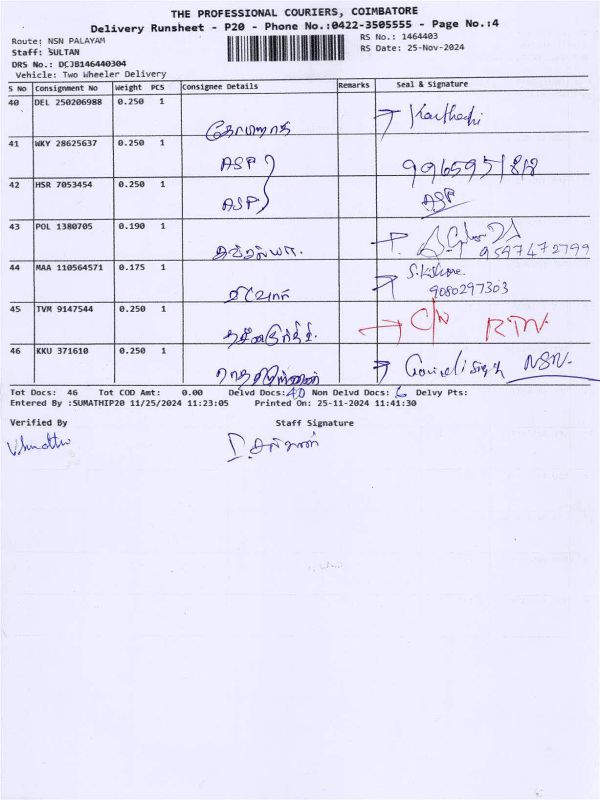 THE PROFESSIONAL COURIERS, COIMBATORE
Delivery Runsheet - P20 - Phone No.:0422-3505555 - Page No.:4
Route: NSN PALAYAM
RS No.: 1464403
Staff: SULTAN
RS Date: 25-Nov-2024
DRS No.: DCJB146440304
Vehicle: Two Wheeler Delivery
S No Consignment No Weight PCS Consignee Details Remarks Seal & Signature
40 DEL 250206988 0.250 1
41 WKY 28625637 0.250 1 ASP
42 HSR 7053454 0.250 1 ASP ASP
43 POL 1380705 0.190 1 9597472799
44 MAA 110564571 0.175 1 S.Kishore. 9080297303
45 TVM 9147544 0.250 1 C/N RTN.
46 KKU 371610 0.250 1 NSN.
Tot Docs: 46 Tot COD Amt: 0.00 Delvd Docs: 40 Non Delvd Docs: 6 Delvy Pts:
Entered By :SUMATHIP20 11/25/2024 11:23:05 Printed On: 25-11-2024 11:41:30
Verified By Staff Signature